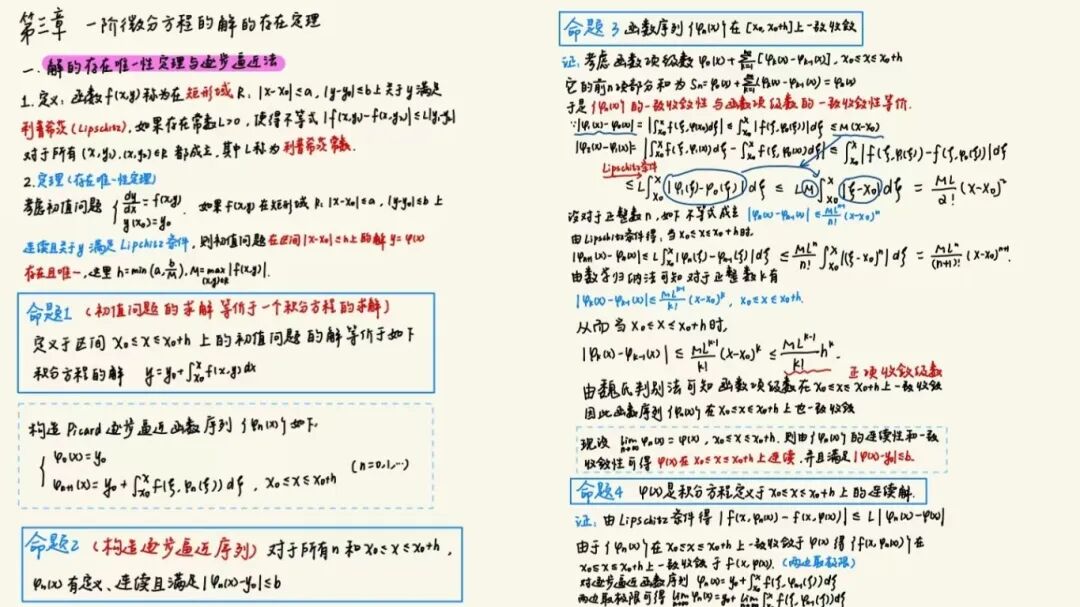 第三章 一阶微分方程的解的存在定理
一. 解的存在唯一性定理与逐步逼近法
1. 定义: 函数 f(x,y) 称为在矩形域 R: |x-x₀|≤a, |y-y₀|≤b 上关于 y 满足
利普希茨 (Lipschitz), 如果存在常数 L>0, 使得不等式 |f(x,y₁)-f(x,y₂)|≤L|y₁-y₂|
对于所有 (x,y₁), (x,y₂)∈R 都成立, 其中 L 称为利普希茨常数.
2. 定理 (存在唯一性定理)
考虑初值问题 { dy/dx = f(x,y) . 如果 f(x,y) 在矩形域 R: |x-x₀|≤a, |y-y₀|≤b 上
y(x₀)=y₀
连续且关于 y 满足 Lipchitz 条件, 则初值问题在区间 |x-x₀|≤h 上的解 y=φ(x)
存在且唯一, 这里 h=min(a, b/M), M=max |f(x,y)|.
(x,y)∈R
命题1 (初值问题的求解等价于一个积分方程的求解)
定义于区间 x₀≤x≤x₀+h 上的初值问题的解等价于如下
积分方程的解 y=y₀+∫ₓ₀ˣ f(x,y)dx
构造 Picard 逐步逼近函数序列 {φₙ(x)} 如下.
{ φ₀(x)=y₀
φₙ₊₁(x)=y₀+∫ₓ₀ˣ f(ξ,φₙ(ξ))dξ , x₀≤x≤x₀+h (n=0,1,…)
命题2 (构造逐步逼近序列) 对于所有 n 和 x₀≤x≤x₀+h ,
φₙ(x) 有定义、连续且满足 |φₙ(x)-y₀|≤b
命题3 函数序列 {φₙ(x)} 在 [x₀, x₀+h] 上一致收敛
证: 考虑函数项级数 φ₀(x)+∑[φₖ(x)-φₖ₋₁(x)], x₀≤x≤x₀+h
它的前n项部分和为 Sₙ=φ₀(x)+∑(φₖ(x)-φₖ₋₁(x))=φₙ(x)
于是 {φₙ(x)} 的一致收敛性与函数项级数的一致收敛性等价.
∵|φ₁(x)-φ₀(x)|=|∫ₓ₀ˣ f(ξ,φ₀(x))dξ|≤∫ₓ₀ˣ |f(ξ,φ₀(ξ))|dξ≤M(x-x₀)
|φ₂(x)-φ₁(x)|=|∫ₓ₀ˣ f(ξ,φ₁(x))dξ-∫ₓ₀ˣ f(ξ,φ₀(x))dξ|≤∫ₓ₀ˣ |f(ξ,φ₁(ξ))-f(ξ,φ₀(ξ))|dξ
Lipschitz条件
≤L∫ₓ₀ˣ |φ₁(ξ)-φ₀(ξ)|dξ ≤ LM∫ₓ₀ˣ |ξ-x₀|dξ = ML/2! (x-x₀)²
设对于正整数 n, 如下不等式成立 |φₙ(x)-φₙ₋₁(x)|≤MLⁿ⁻¹/n! (x-x₀)ⁿ
由 Lipschitz 条件得, 当 x₀≤x≤x₀+h 时.
|φₙ₊₁(x)-φₙ(x)|≤L∫ₓ₀ˣ |φₙ(ξ)-φₙ₋₁(ξ)|dξ ≤ MLⁿ/n! ∫ₓ₀ˣ |(ξ-x₀)ⁿ|dξ = MLⁿ/(n+1)! (x-x₀)ⁿ⁺¹.
由数学归纳法可知 对于正整数 k 有
|φₖ(x)-φₖ₋₁(x)|≤MLᵏ⁻¹/k! (x-x₀)ᵏ, x₀≤x≤x₀+h.
从而当 x₀≤x≤x₀+h 时,
|φₖ(x)-φₖ₋₁(x)| ≤ MLᵏ⁻¹/k! (x-x₀)ᵏ ≤ MLᵏ⁻¹/k! hᵏ.
正项收敛级数
由魏氏判别法可知 函数项级数在 x₀≤x≤x₀+h 上一致收敛
因此函数序列 {φₙ(x)} 在 x₀≤x≤x₀+h 上也一致收敛
现设 lim φₙ(x)=φ(x), x₀≤x≤x₀+h. 则由 {φₙ(x)} 的连续性和一致
n→∞
收敛性可得 φ(x) 在 x₀≤x≤x₀+h 上连续, 并且满足 |φ(x)-y₀|≤b.
命题4 φ(x) 是积分方程定义于 x₀≤x≤x₀+h 上的连续解.
证: 由 Lipschitz 条件得 |f(x,φₙ(x))-f(x,φ(x))| ≤ L|φₙ(x)-φ(x)|
由于 {φₙ(x)} 在 x₀≤x≤x₀+h 上一致收敛于 φ(x) 得 {f(x,φₙ(x))} 在
x₀≤x≤x₀+h 上一致收敛于 f(x,φ(x)). (两边取极限)
对逐步逼近函数序列 φₙ(x)=y₀+∫ₓ₀ˣ f(ξ,φₙ₋₁(ξ))dξ
两边取极限可得 lim φₙ(x)=y₀+lim ∫ₓ₀ˣ f(ξ,φₙ₋₁(ξ))dξ